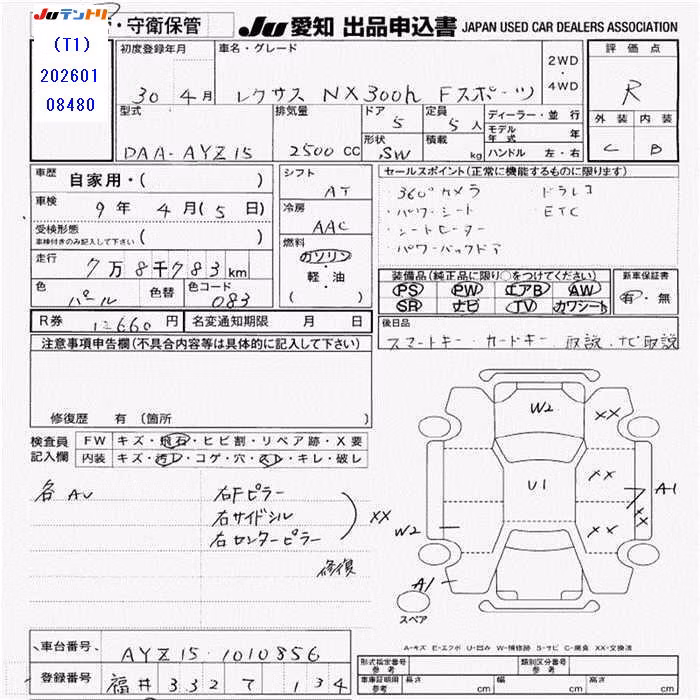 JUテントリ
・守衛保管
JU 愛知 出品申込書 JAPAN USED CAR DEALERS ASSOCIATION
(T1)
202601
08480
初度登録年月
30 4月
車名・グレード
レクサス NX300h Fスポーツ
2WD
・
4WD
評価点
R
外装 内装
C B
型式
DAA-AYZ15
排気量
2500 CC
ドア
5
形状
SW
定員
5人
積載
kg
ディーラー・並行
モデル年式 年
ハンドル 左・右
車歴
自家用・( )
車検
9年 4月(5日)
受検形態
車検付きのみ記入して下さい ( )
走行
7万8千783km
色
パール
色替
色コード
083
シフト
AT
冷房
AAC
燃料
ガソリン
・
軽・油
( )
セールスポイント(正常に機能するものに限ります)
・360°カメラ ・ドラレコ
・パワーシート ETC
・シートヒーター
・パワーバックドア
装備品(純正品に限り○をつけてください)
PS PW エアB AW
SR ナビ TV カワシート
新車保証書
有・無
R券 12660円
名変通知期限 月 日
後日品
スマートキー・カードキー・取説・ナビ取説
注意事項申告欄(不具合内容等は具体的に記入して下さい)
修復歴 有 (箇所
検査員記入欄
FW キズ・飛石・ヒビ割・リペア跡・X要
内装 キズ・汚レ・コゲ・穴・スレ・キレ・破レ
各AU
右Fピラー
右サイドシル
右センターピラー
XX
修復
W2
XX
U1
XX
A1
XX
XX
W2
A1
スペア
A-キズ E-エクボ U-凹み W-補修跡 S-サビ C-腐食 XX-交換済
車台番号 AYZ15-1010856
登録番号 福井 332 て 134
形式指定番号 参考
類別区分番号 参考
車庫証明用 参考
長さ cm 幅 cm 高さ cm